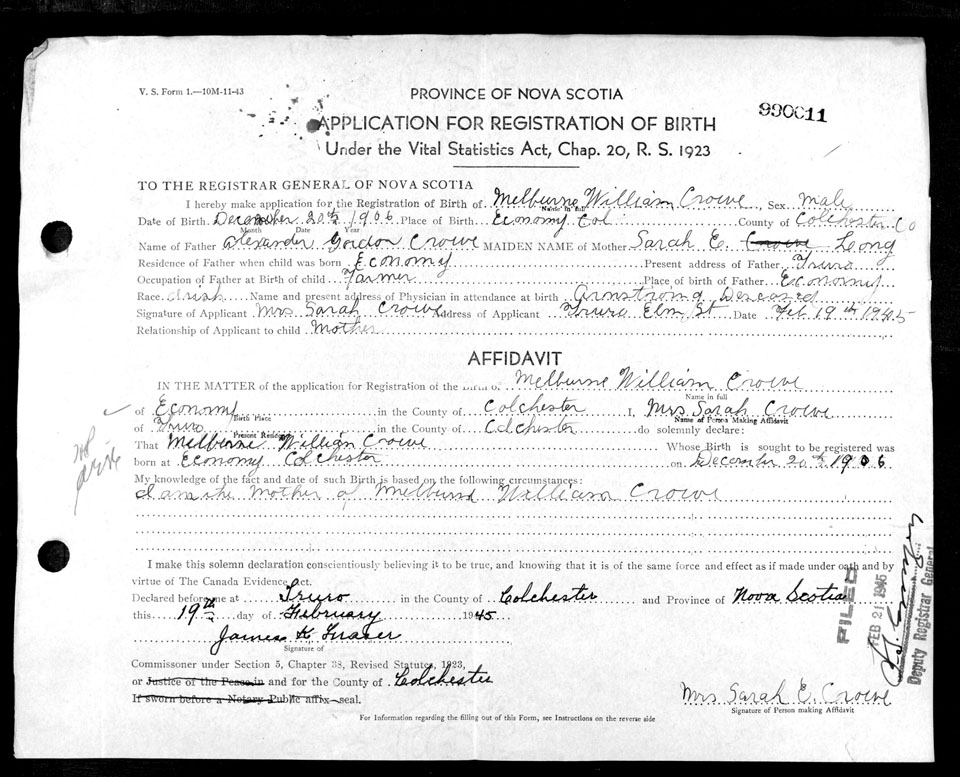 V. S. Form 1.—10M-11-43
PROVINCE OF NOVA SCOTIA
990011
APPLICATION FOR REGISTRATION OF BIRTH
Under the Vital Statistics Act, Chap. 20, R. S. 1923
TO THE REGISTRAR GENERAL OF NOVA SCOTIA
I hereby make application for the Registration of Birth of Melburne William Crowe, Sex male
Name in full
Date of Birth December 20th 1906 Place of Birth Economy Col County of Colchester Co
Month Date Year
Name of Father Alexander Gordon Crowe MAIDEN NAME of Mother Sarah E. Crowe Long
Residence of Father when child was born Economy Present address of Father Truro
Occupation of Father at Birth of child Farmer Place of birth of Father Economy
Race Irish Name and present address of Physician in attendance at birth Armstrong Deceased
Signature of Applicant Mrs Sarah Crowe Address of Applicant Truro Elm St Date Feb 19th 1945
Relationship of Applicant to child Mother
AFFIDAVIT
IN THE MATTER of the application for Registration of the Birth of Melburne William Crowe
Name in full
of Economy in the County of Colchester I, Mrs Sarah Crowe
Birth Place Name of Person Making Affidavit
of Truro in the County of Colchester do solemnly declare:
Present Residence
That Melburne William Crowe Whose Birth is sought to be registered was
born at Economy Colchester on December 20th 1906
My knowledge of the fact and date of such Birth is based on the following circumstances:
I am the Mother of Melburne William Crowe
I make this solemn declaration conscientiously believing it to be true, and knowing that it is of the same force and effect as if made under oath and by
virtue of The Canada Evidence Act.
Declared before me at Truro in the County of Colchester and Province of Nova Scotia
this 19th day of February 1945
James K Fraser
Signature of
Commissioner under Section 5, Chapter 38, Revised Statutes, 1923,
or Justice of the Peace in and for the County of Colchester
If sworn before a Notary Public affix seal.
Mrs Sarah E. Crowe
Signature of Person making Affidavit
For Information regarding the filling out of this Form, see Instructions on the reverse side
FILED
FEB 21 1945
Deputy Registrar General